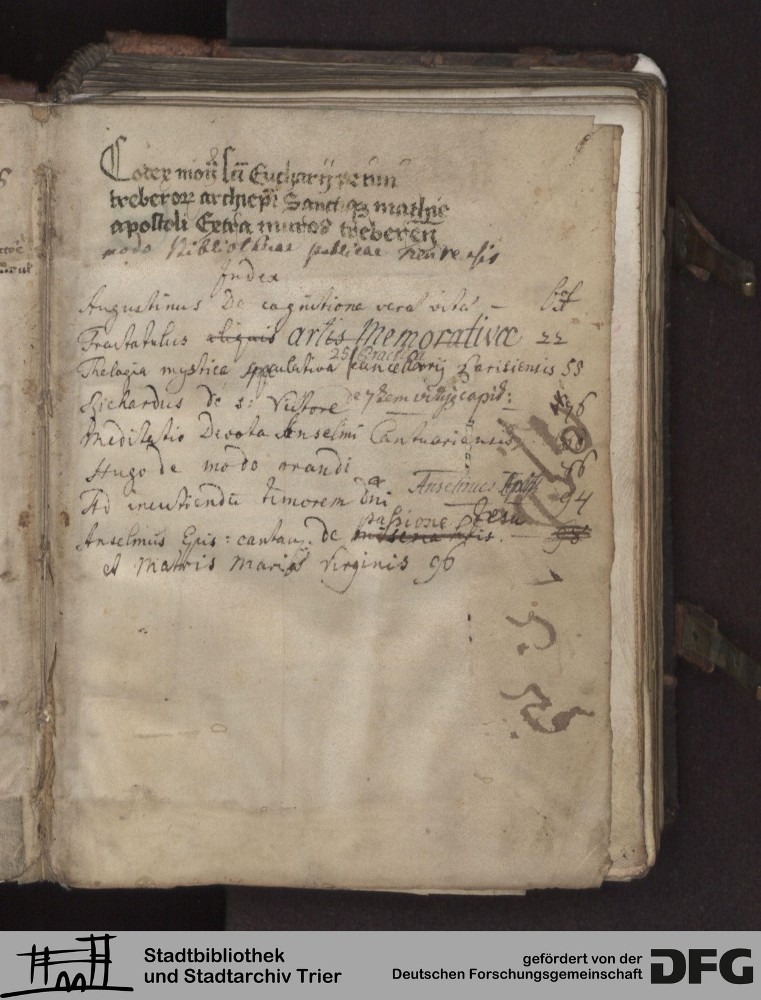 Codex mo͞ij s͞ci Eucharij primi
treberoꝝ archiep͞i Sanctiqꝫ mathie
apostoli Extra muros treberen̄
modo Bibliothecae publicae
Index
Augustinus De cognitione verae vitae –
Tractatulus aliquis artis Memorativae 22
25 Practica
Theologia mystica speculativa Cancellarij Parisiensis 55
Richardus de s: Victore de 7tem vitijs capit: 76
Meditatio Devota Anselmi Cantuariensis
Hugo de modo orandi 86
Ad incutiendū timorem Dni Anselmus 94
passione Jesu
Anselmus Epis: cantau: de miseria –
et Matris Mariae Virginis 96
Stadtbibliothek
und Stadtarchiv Trier
gefördert von der
Deutschen Forschungsgemeinschaft
DFG